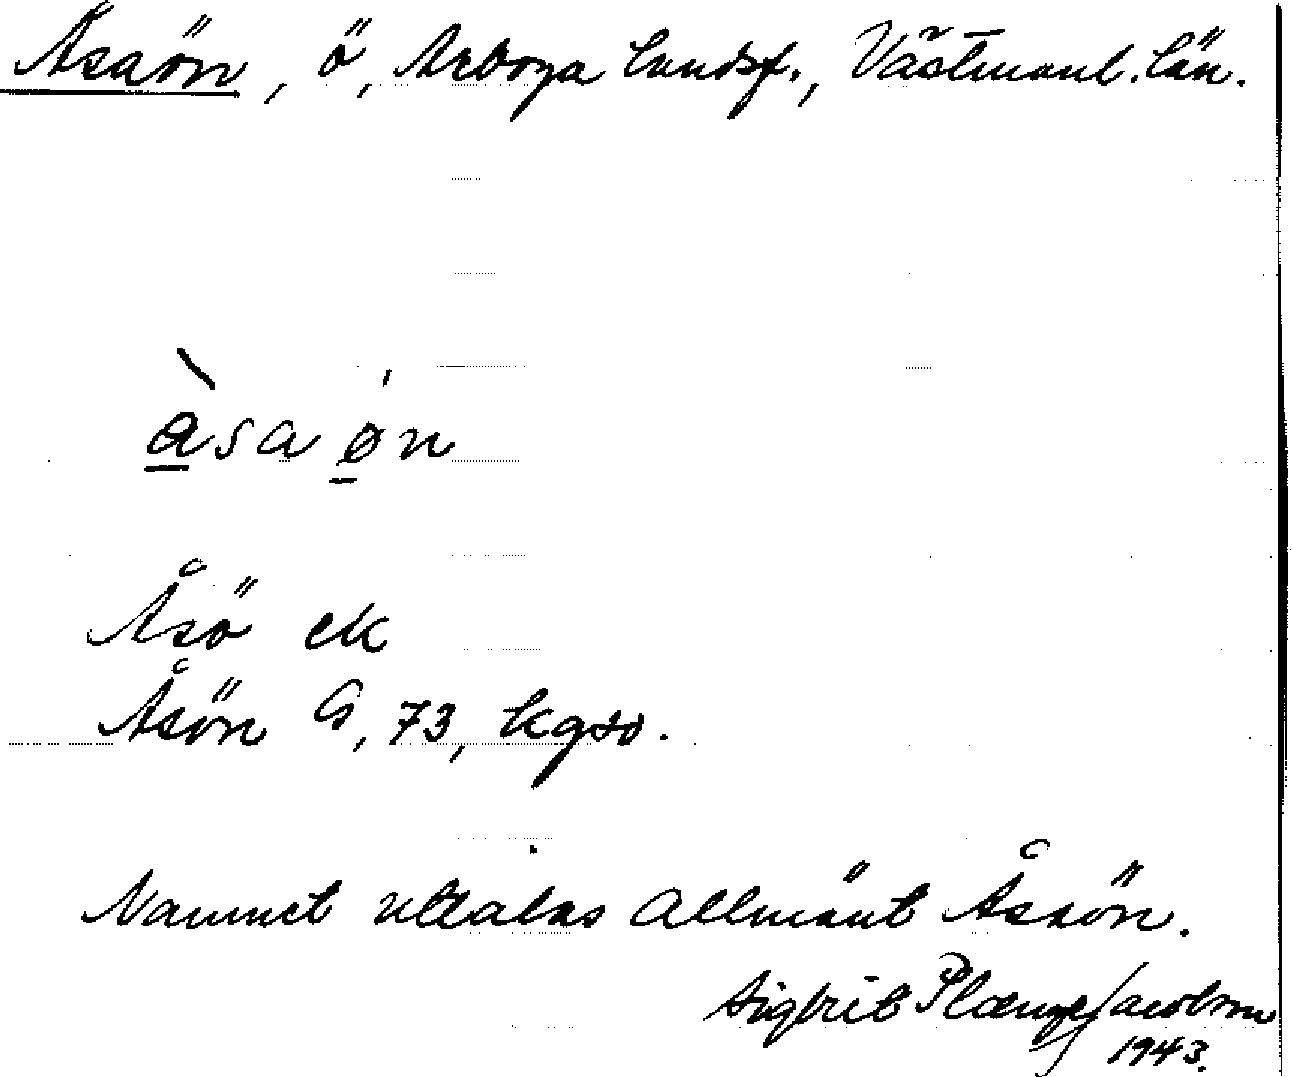 Åsaön, ö, Arboga landsf., Västmanl. län.
àsa øn
Åsö ek
Åsön G, 73, kgsö.
Namnet uttalas allmänt Åsaön.
Sigfrid Plænge Jacobson
1943.